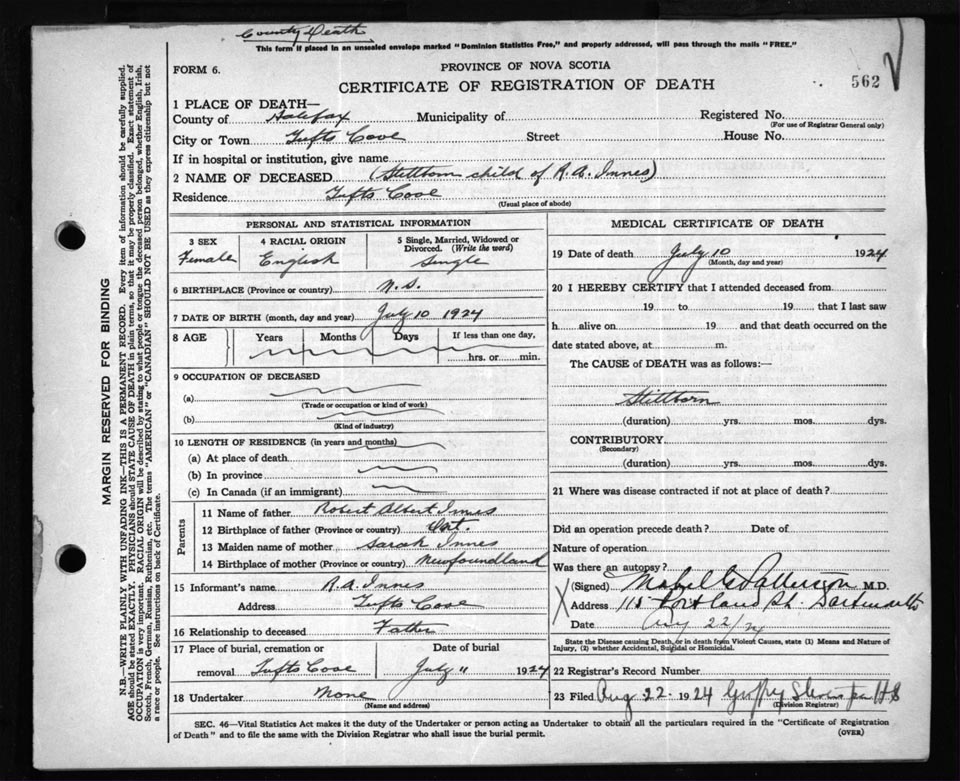 County Death
This form if placed in an unsealed envelope marked "Dominion Statistics Free," and properly addressed, will pass through the mails "FREE."
FORM 6.
PROVINCE OF NOVA SCOTIA
CERTIFICATE OF REGISTRATION OF DEATH
562
1 PLACE OF DEATH—
County of Halifax Municipality of Registered No.
(For use of Registrar General only)
City or Town Tufts Cove Street House No.
If in hospital or institution, give name
2 NAME OF DECEASED (Stillborn child of R.A. Innes)
Residence Tufts Cove
(Usual place of abode)
PERSONAL AND STATISTICAL INFORMATION
3 SEX 4 RACIAL ORIGIN 5 Single, Married, Widowed or Divorced. (Write the word)
Female English Single
6 BIRTHPLACE (Province or country) N.S.
7 DATE OF BIRTH (month, day and year) July 10 1924
8 AGE Years Months Days If less than one day,
hrs. or min.
9 OCCUPATION OF DECEASED
(a)
(Trade or occupation or kind of work)
(b)
(Kind of industry)
10 LENGTH OF RESIDENCE (in years and months)
(a) At place of death
(b) In province
(c) In Canada (if an immigrant)
Parents
11 Name of father Robert Albert Innes
12 Birthplace of father (Province or country) Ont.
13 Maiden name of mother Sarah Innes
14 Birthplace of mother (Province or country) Newfoundland
15 Informant's name R.A. Innes
Address Tufts Cove
16 Relationship to deceased Father
17 Place of burial, cremation or Date of burial
removal Tufts Cove July 11 1924
18 Undertaker None
(Name and address)
MEDICAL CERTIFICATE OF DEATH
19 Date of death July 10 1924
(Month, day and year)
20 I HEREBY CERTIFY that I attended deceased from
19 to 19 that I last saw
h alive on 19 and that death occurred on the
date stated above, at m.
The CAUSE of DEATH was as follows:—
Stillborn
(duration) yrs. mos. dys.
CONTRIBUTORY
(Secondary)
(duration) yrs. mos. dys.
21 Where was disease contracted if not at place of death?
Did an operation precede death? Date of
Nature of operation
Was there an autopsy?
(Signed) Mabel G Patterson M.D.
Address 115 Portland St. Dartmouth
Date Aug 22/24
State the Disease causing Death, or in death from Violent Causes, state (1) Means and Nature of Injury, (2) whether Accidental, Suicidal or Homicidal.
22 Registrar's Record Number
23 Filed Aug 22 1924
(Division Registrar)
SEC. 46—Vital Statistics Act makes it the duty of the Undertaker or person acting as Undertaker to obtain all the particulars required in the "Certificate of Registration
of Death" and to file the same with the Division Registrar who shall issue the burial permit.
(OVER)
MARGIN RESERVED FOR BINDING
N.B.—WRITE PLAINLY WITH UNFADING INK—THIS IS A PERMANENT RECORD. Every item of information should be carefully supplied.
AGE should be stated EXACTLY. PHYSICIANS should STATE CAUSE OF DEATH in plain terms, so that it may be properly classified. Exact statement of
OCCUPATION is very important. RACIAL ORIGIN will be described by stating to what people or tongue the deceased person belonged, whether English, Irish,
Scotch, French, German, Russian, Ruthenian, etc. The terms "AMERICAN" or "CANADIAN" SHOULD NOT BE USED as they express citizenship but not
a race or people. See instructions on back of Certificate.